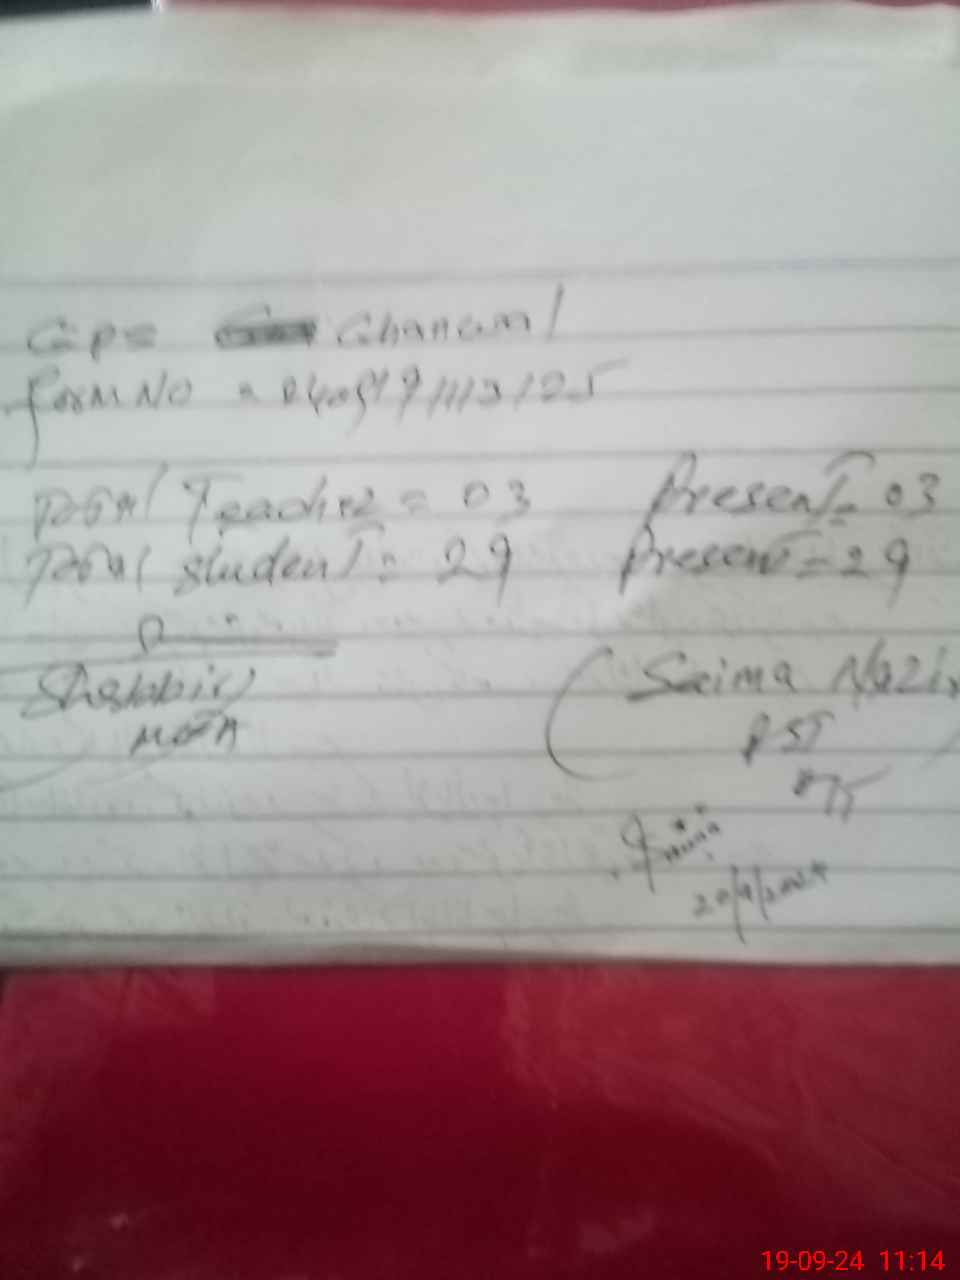 GPS Ghanewal
Form No = 240919113125
Total Teacher = 03 Present = 03
Total Student = 29 Present = 29
Shabbir
MEA
(Saima Nazir
PST
20/9/2024
19-09-24 11:14